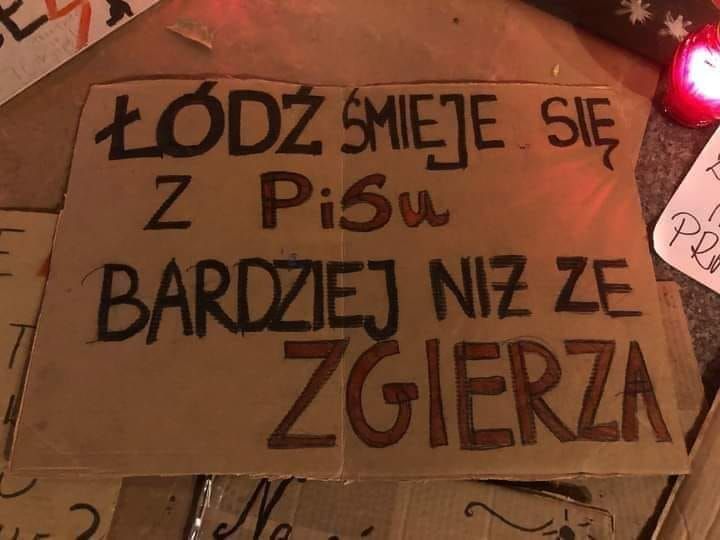 ŁÓDŹ ŚMIEJE SIĘ
Z PiSu
BARDZIEJ NIŻ ZE
ZGIERZA